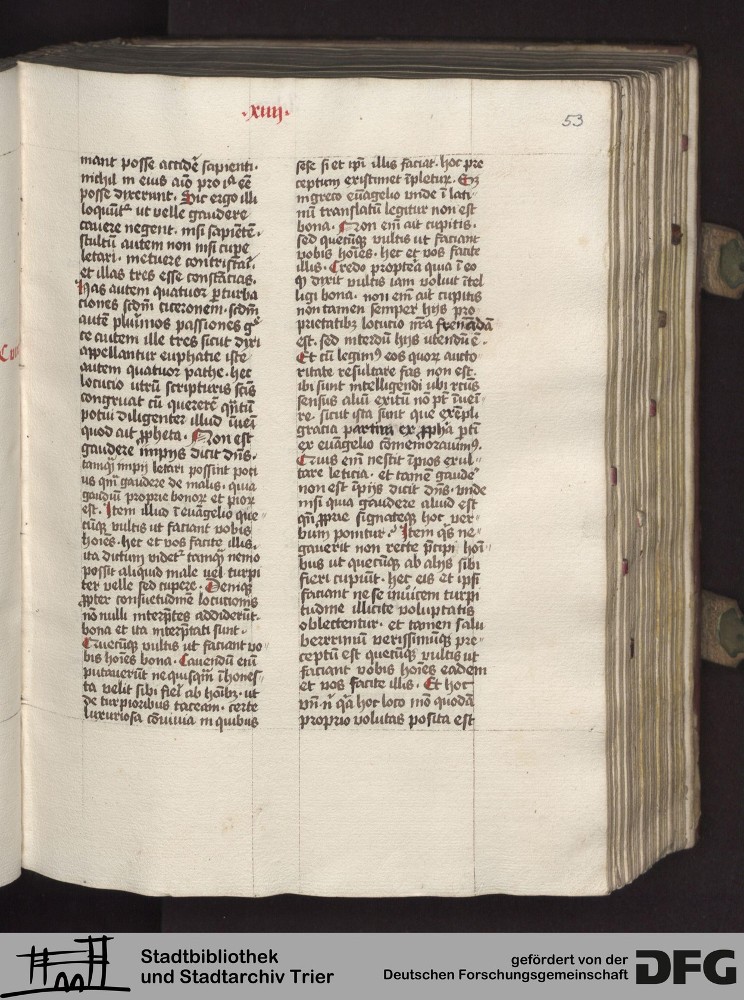 ·xiiij·
53
mant posse accidē sapienti·
nichil in eius aīo pro īa eē
posse dixerunt. Sic ergo illi
loquūt᷑ ut velle gaudere
cauere negent. nisi sapiētē·
stultū autem non nisi cupe
letari· metuere contristaī·
et illas tres esse constācias.
Has autem quatuor p̱turba
ciones scdm̄ ciceronem· scdm̄
autē plurimos passiones g᷑
te autem ille tres sicut dixi
appellantur euphatie iste
autem quatuor pathe· hec
locucio utrū scripturis scīs
congruat cū quererē q̄ntū
potui diligenter illud īueī
quod ait ꝓpheta· Non est
gaudere impijs dicit dn̄s·
tamq̄ impij letari possint poti
us qm̄ gaudere de malis· quia
gaudiū proprie bonoꝝ et pioꝝ
est· Item illud ī euāgelio que
cūq̄ vultis ut faciant vobis
hoīes· hec et vos facite illis·
ita dictum videt᷑ tamq̄ nemo
possit aliquid male uel turpi
ter velle sed cupere· Deniqꝫ
ꝓpter consuetudinē locucionis
nō nulli interp̄tes addiderūt·
bona et ita interp̄tati sunt·
Quecūqꝫ vultis ut faciant vo
bis hoīes bona· Cauendū enī
putauerūt ne quisq̄m īhones
ta velit sibi fieī ab hoībꝫ· ut
de turpioribus taceam· certe
luxuriosa cōuiuia in quibus
sese si et ip̄i illis faciat· hoc pre
ceptum existimet īpletuꝝ· Sꝫ
in greco euāgelio unde ī lati
nū translatū legitur non est
bona· Non em̄ ait cupitis·
sed quecūqꝫ vultis ut faciant
vobis hoīes· hec et vos facite
illis· Credo propterea quia ī eo
q̇ dixit vultis iam voluit ītel
ligi bona· non em̄ ait cupitis
non tamen semper hijs pro
prietatibꝫ locucio nr̄a frenāda
est· sed interdū hijs utendū ē·
Et cū legim᷒ eos quoꝝ aucto
ritate resultare fas non est·
ibi sunt intelligendi ubi rctus
sensus aliū exitū nō pt̄ īueī
re· sicut ista sunt que exēpli
gracia partim ex ꝓpha ptī
ex euāgelio cōmemorauim᷒·
Quis em̄ nescit īpios exul
tare leticia· et tamē gaude᷑
non est īpijs dicit dn̄s· unde
nisi quia gaudere aliud est
qn̄ ꝓprie signateqꝫ hoc ver
bum ponitur· Item q̄s ne
gauerit non recte p̄cipi hoī
bus ut quecūqꝫ ab alijs sibi
fieri cupiūt· hec eis et ipsi
faciant ne se inuicem turpi
tudine illicite voluptatis
oblectentur· et tamen salu
berrimū verissimūqꝫ pre
ceptū est quecūqꝫ vultis ut
faciant vobis hoīes eadem
et vos facite illis· Et hoc
vn̄· n̄ q̄a hoc loco mō quodā
proprio volūtas posita est
Stadtbibliothek
und Stadtarchiv Trier
gefördert von der
Deutschen Forschungsgemeinschaft
DFG